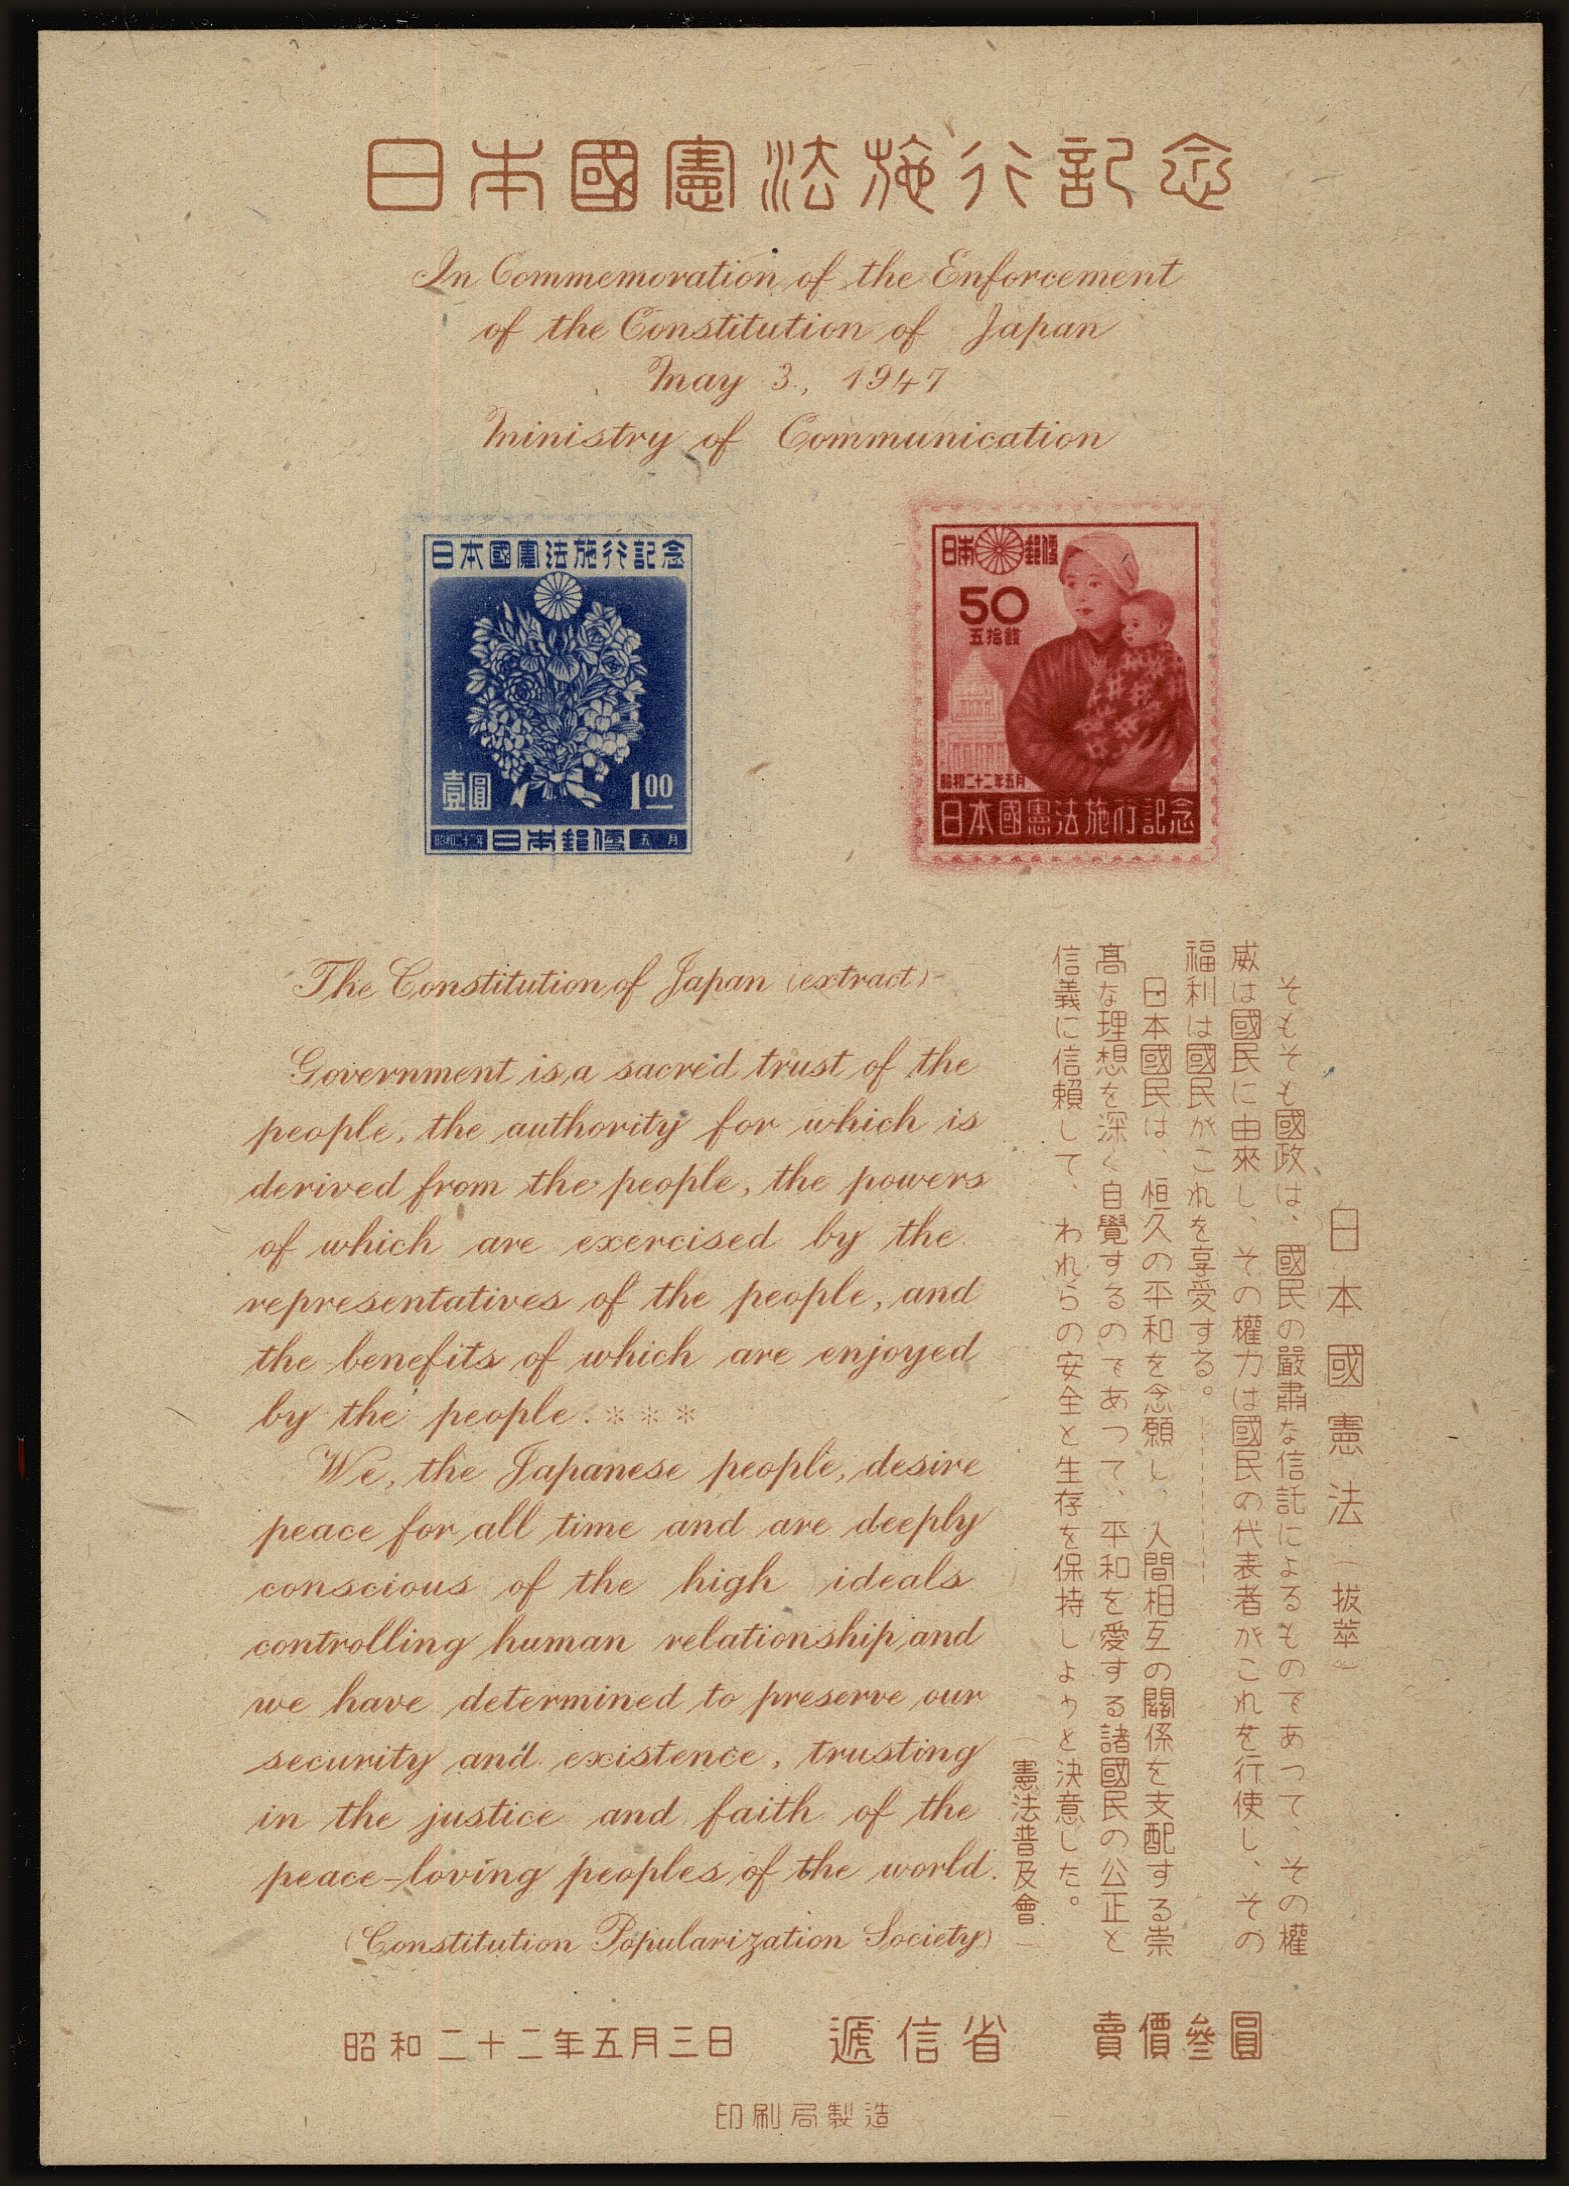 日本國憲法施行記念
In Commemoration of the Enforcement
of the Constitution of Japan
May 3, 1947
Ministry of Communication
日本國憲法施行記念
壹圓
1.00
昭和二十二年 日本郵便 五月
日本郵便
50
五拾錢
昭和二十二年五月
日本國憲法施行記念
The Constitution of Japan (extract)
Government is a sacred trust of the
people, the authority for which is
derived from the people, the powers
of which are exercised by the
representatives of the people, and
the benefits of which are enjoyed
by the people. * * *
We, the Japanese people, desire
peace for all time and are deeply
conscious of the high ideals
controlling human relationship and
we have determined to preserve our
security and existence, trusting
in the justice and faith of the
peace-loving peoples of the world.
(Constitution Popularization Society)
日本國憲法(拔萃)
そもそも國政は、國民の嚴肅な信託によるものであつて、その權
威は國民に由來し、その權力は國民の代表者がこれを行使し、その
福利は國民がこれを享受する。………
日本國民は、恒久の平和を念願し、人間相互の關係を支配する崇
高な理想を深く自覺するのであつて、平和を愛する諸國民の公正と
信義に信賴して、われらの安全と生存を保持しようと決意した。
(憲法普及會)
昭和二十二年五月三日 遞信省 賣價參圓
印刷局製造